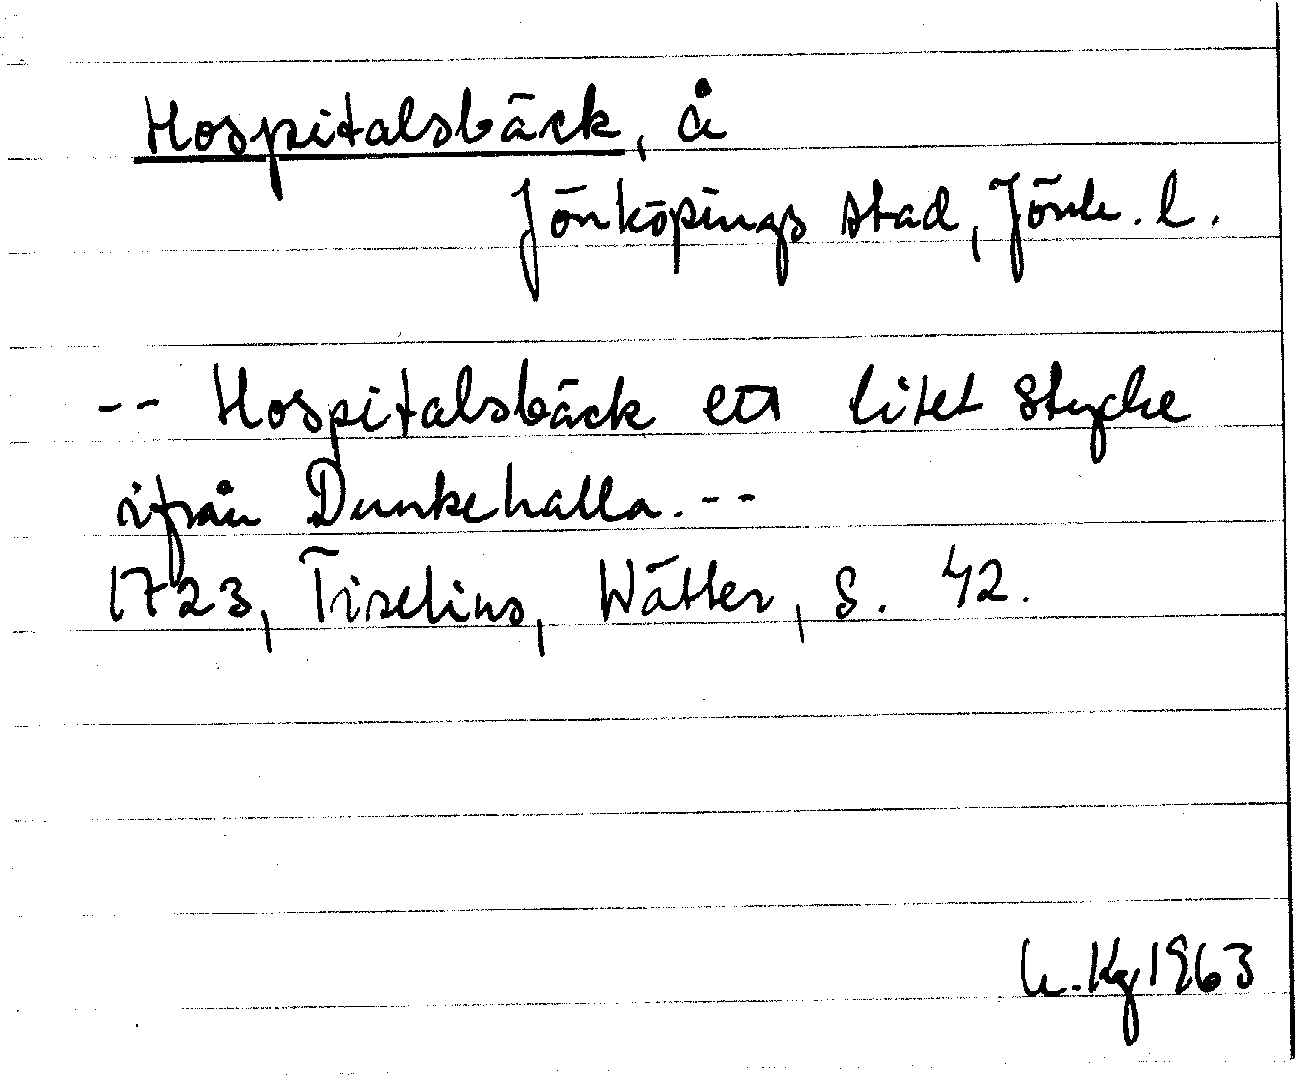 Hospitalsbäck, å
Jönköpings stad, Jönk. l.
-- Hospitalsbäck ett litet stycke
ifrån Dunkehalla. --
1723, Tiselius, Wätter, s. 42.
Kg 1963